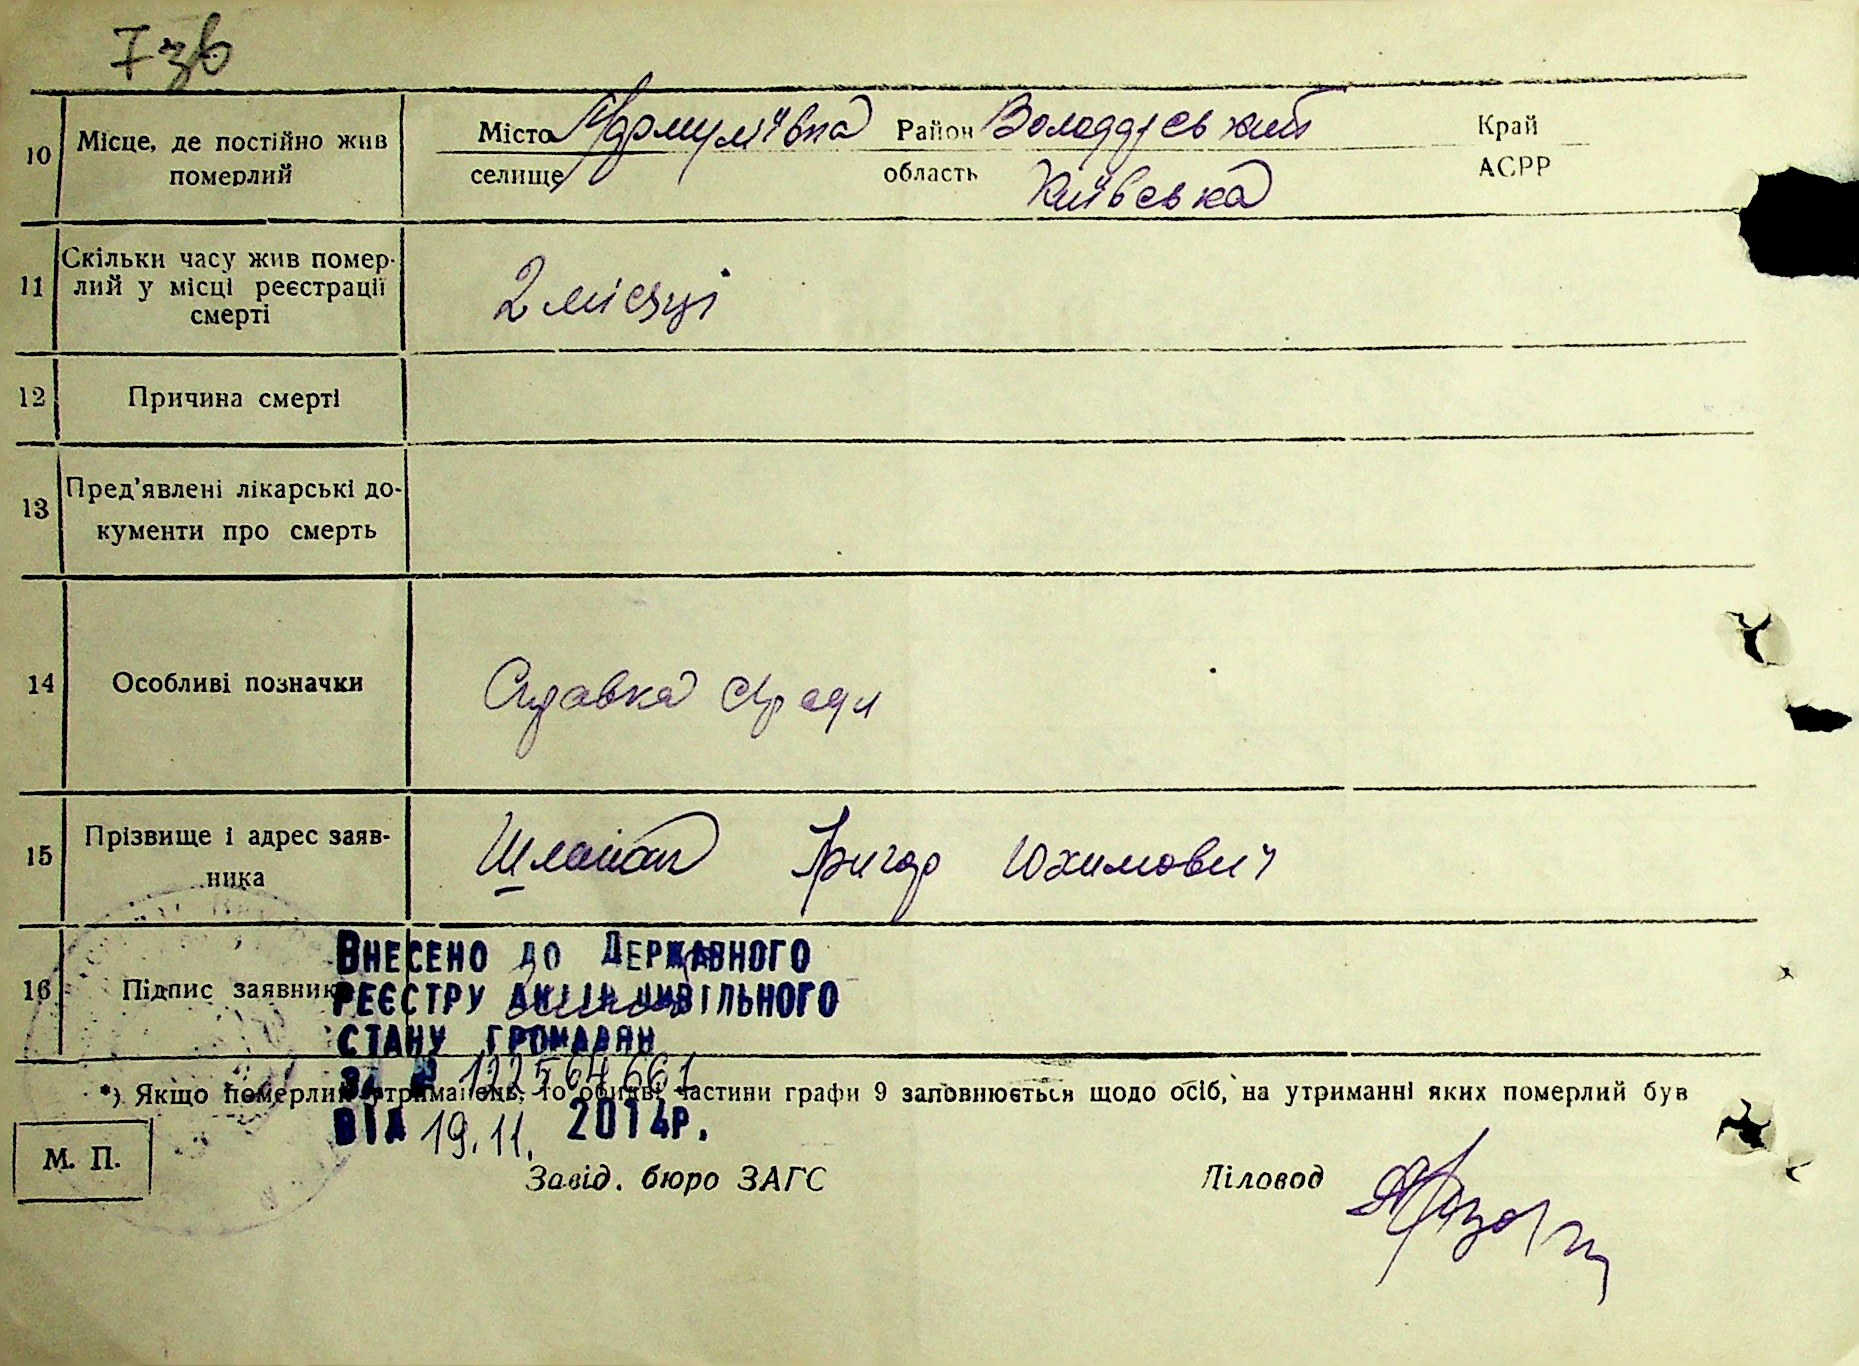 7 зв
10 Місце, де постійно жив померлий
Місто Район Володарський Край
селище область Київська АСРР
11 Скільки часу жив помер-
лий у місці реєстрації
смерті
2 місяці
12 Причина смерті
13 Пред'явлені лікарські до-
кументи про смерть
14 Особливі позначки
15 Прізвище і адрес заяв-
ника
Григор Юхимович
16 Підпис заявник
Внесено до Державного
реєстру актів цивільного
стану громадян
за № 122564661
*) Якщо померлий утриманець, то обидві частини графи 9 заповнюється щодо осіб, на утриманні яких померлий був
від 19.11. 2014р.
М. П.
Завід. бюро ЗАГС Діловод